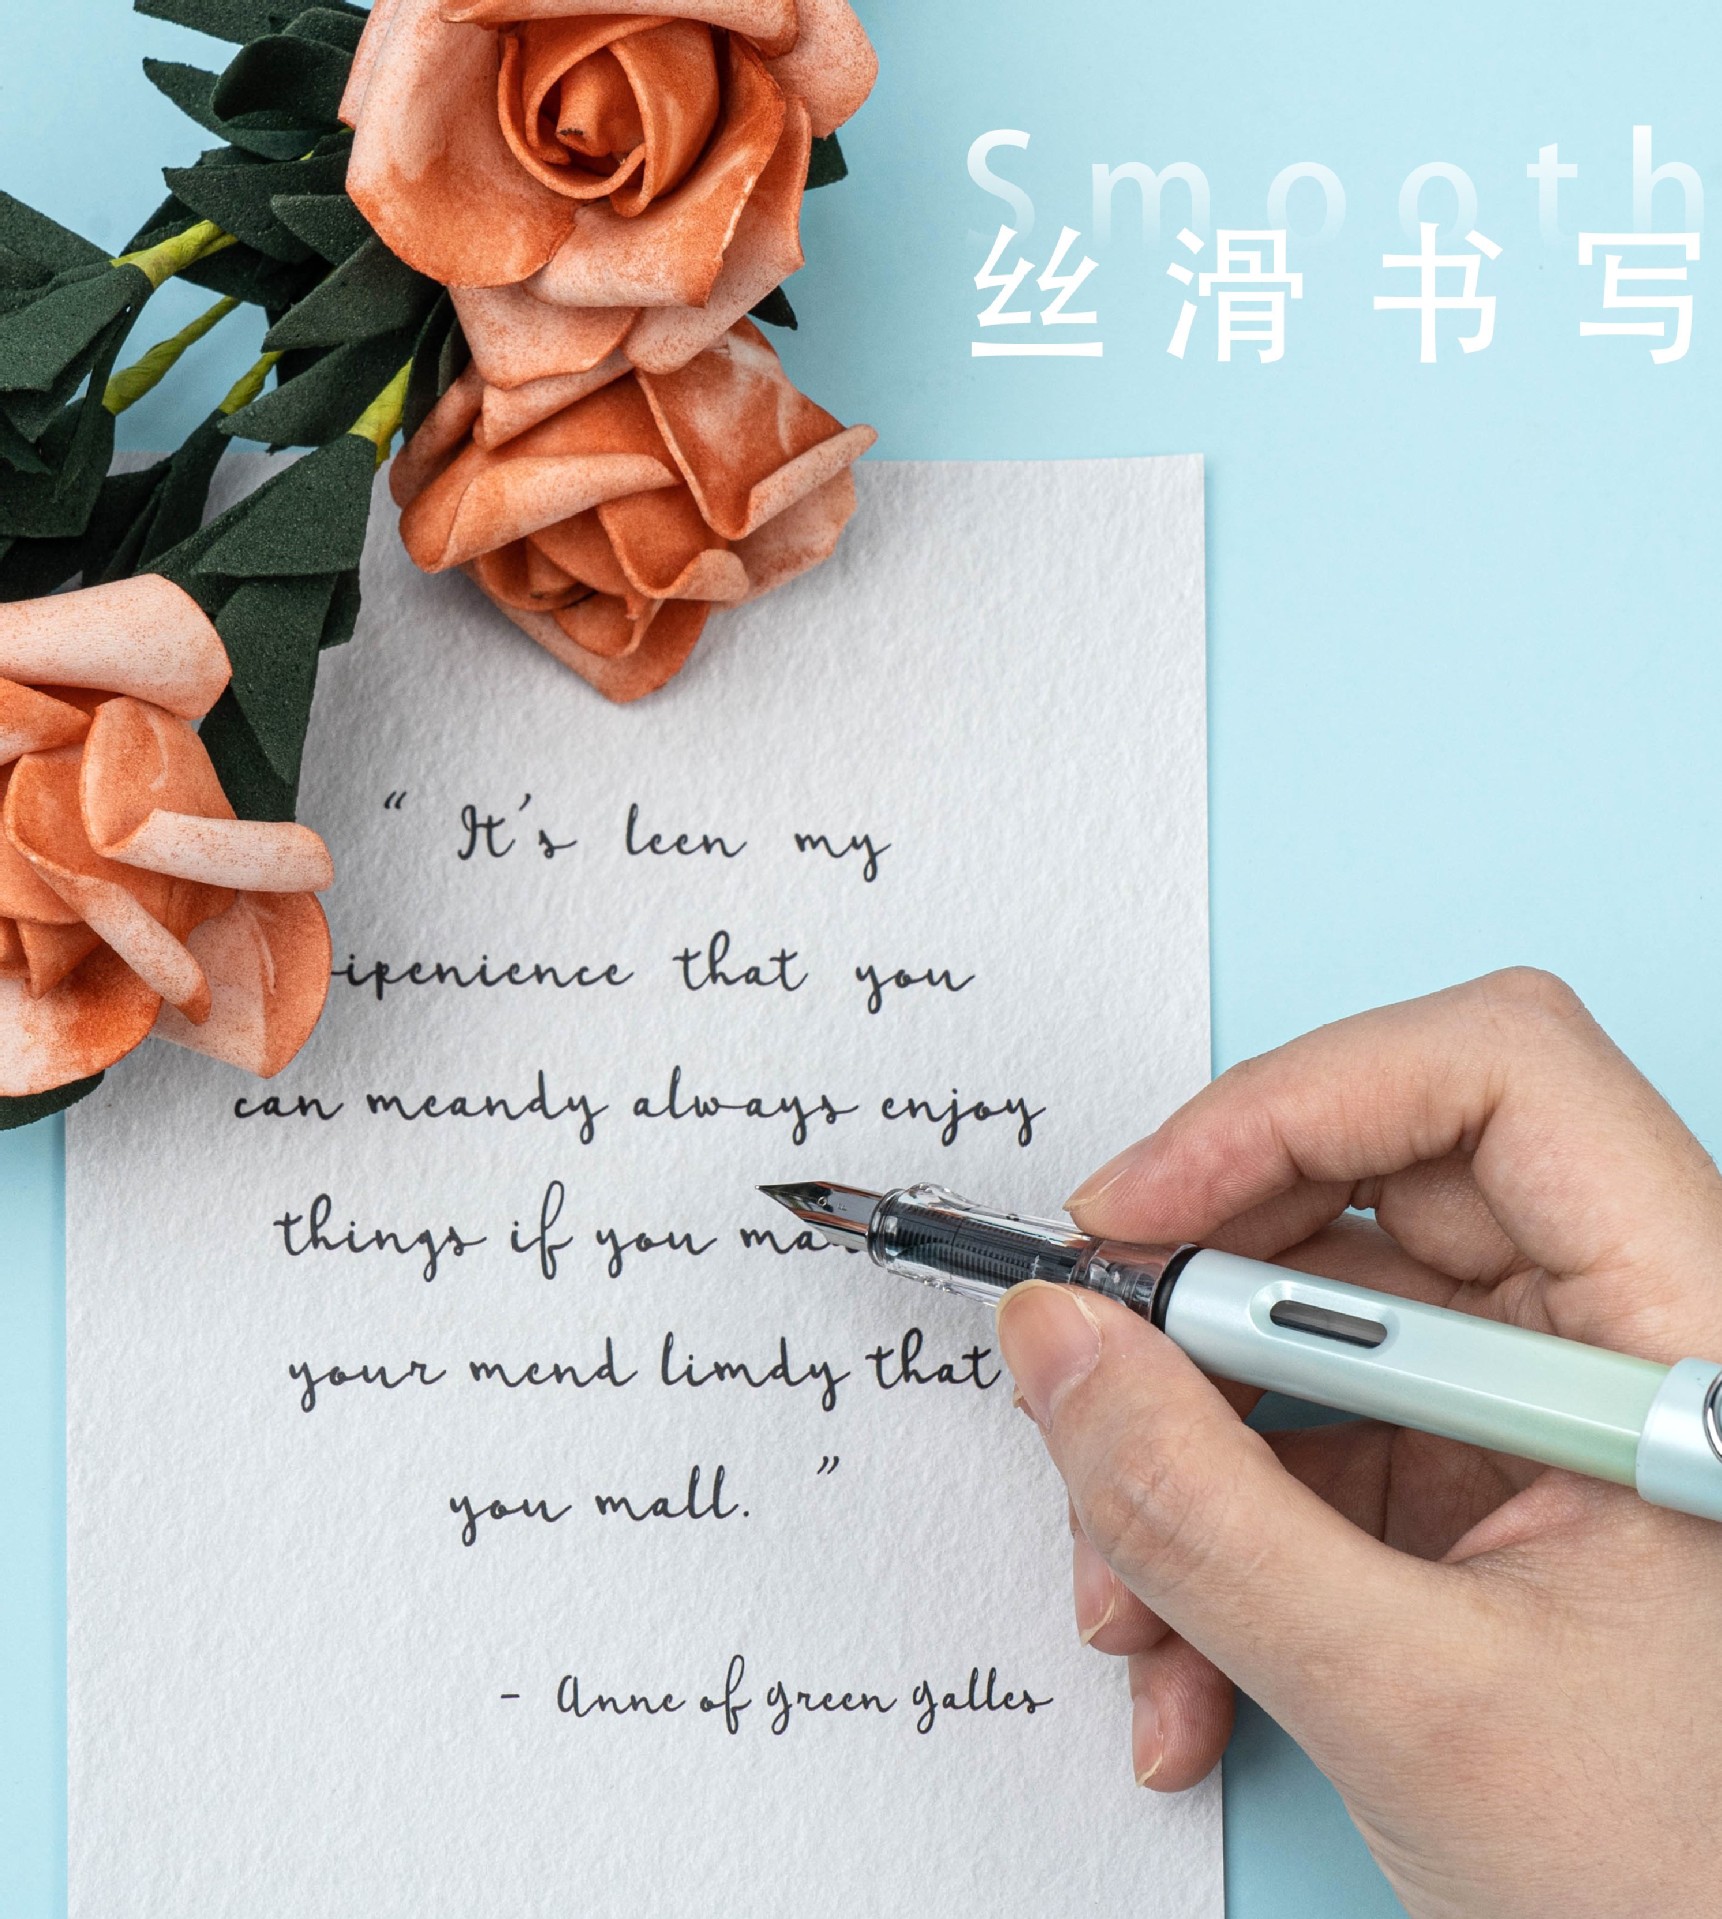 Smooth
丝滑书写
“ It's leen my
ipenience that you
can meandy always enjoy
things if you
your mend limdy that
you mall. ”
- Anne of green galles